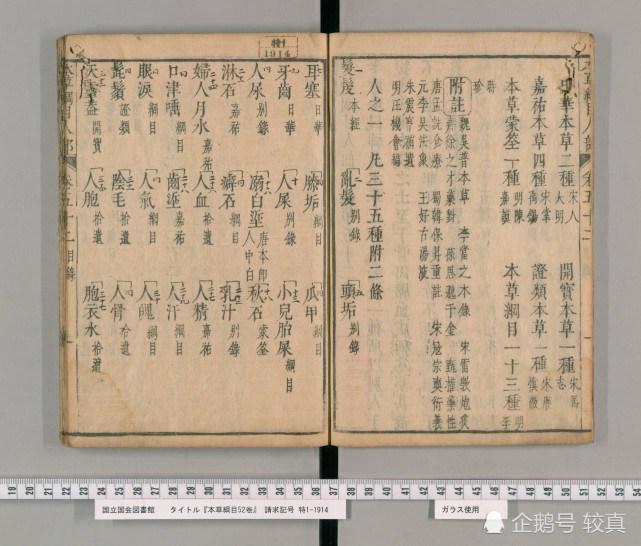 特1
1914
華本草二種 宋人 大明 開寶本草一種 宋馬志
嘉祐本草四種 宋掌禹錫 證類本草一種 宋唐慎微
本草蒙筌一種 明陳嘉謨 本草綱目一十三種 明李時珍
附註
魏吳普本草 李當之本錄 宋雷斅炮炙
唐 蜀韓保昇重註 宋寇宗奭衍義
元李 吳 王好古湯液
朱震亨補遺
明汪機會編
人之一 凡三十五種附二條
髮髲 本經 亂髮 別錄 頭垢 別錄
耳塞 日華 膝垢 綱目 爪甲 綱目
牙齒 日華 人屎 別錄 小兒胎屎 綱目
人尿 別錄 溺白垽 唐本 即人中白 秋石 蒙筌
淋石 嘉祐 癖石 綱目 乳汁 別錄
婦人月水 嘉祐 人血 拾遺 人精 嘉祐
口津唾 綱目 齒垽 嘉祐 人汗 綱目
眼淚 綱目 人氣 綱目 人魄 綱目
髭鬚 證類 陰毛 拾遺 人骨 拾遺
天靈蓋 開寶 人胞 拾遺 胞衣水 拾遺
本草綱目人部 卷五十二 目錄
19 20 21 22 23 24 25 26 27 28 29 30 31 32 33 34 35 36 37 38 39 40 41 42 43 44 45 46 47 48 49 50 51 52 53 54
国立国会図書館 タイトル『本草綱目52巻』 請求記号 特1-1914
ガラス使用
企鹅号 较真